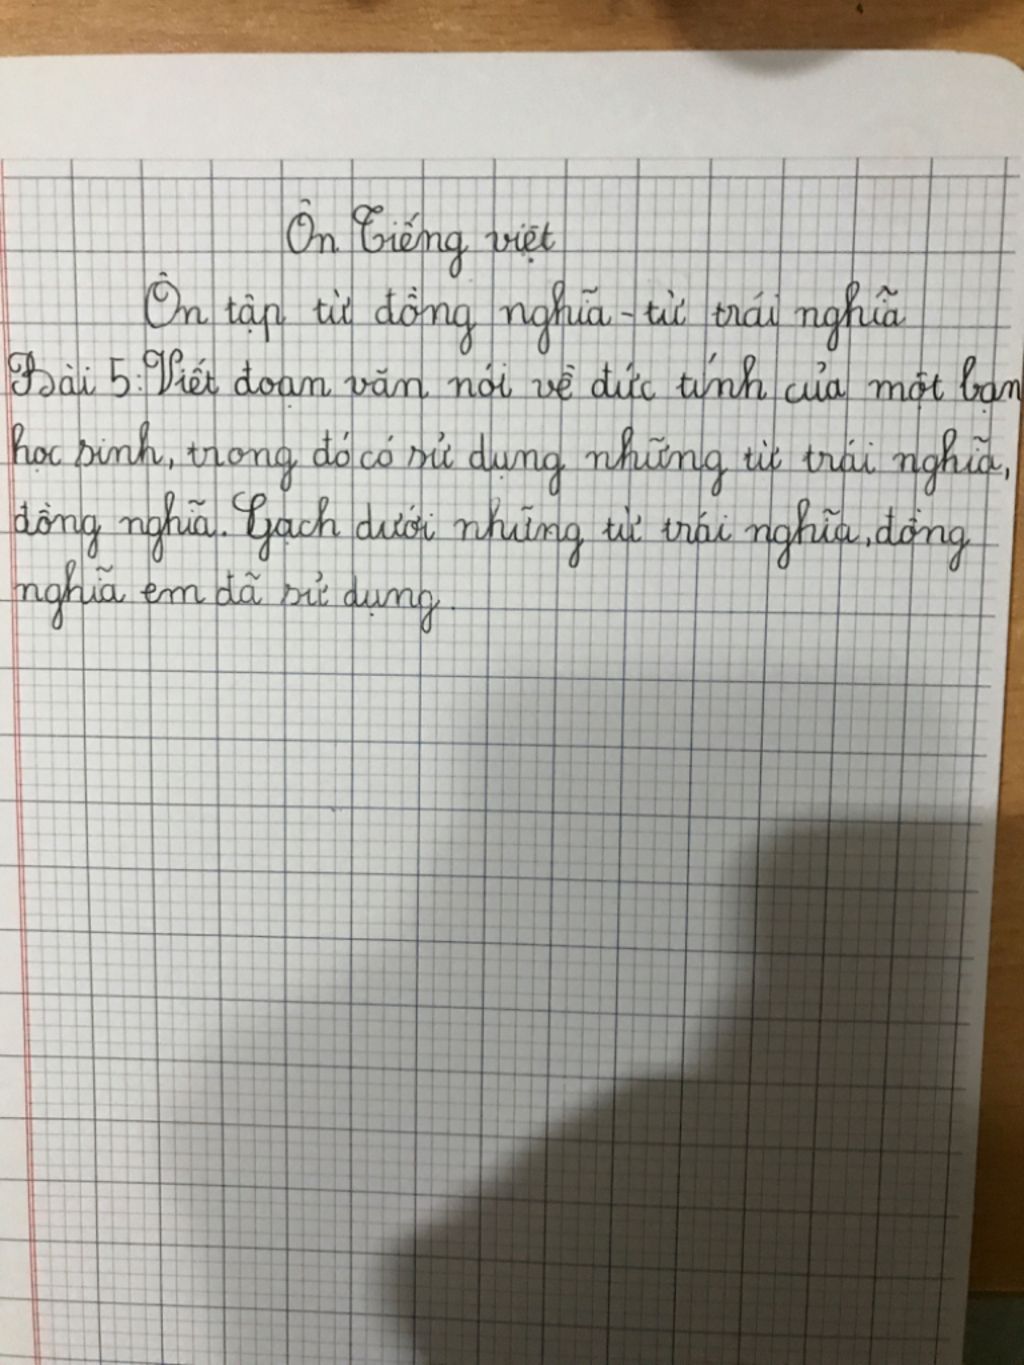 Ôn Tiếng việt
Ôn tập từ đồng nghĩa - từ trái nghĩa
Bài 5: Viết đoạn văn nói về đức tính của một bạn
học sinh, trong đó có sử dụng những từ trái nghĩa,
đồng nghĩa. Gạch dưới những từ trái nghĩa, đồng
nghĩa em đã sử dụng.